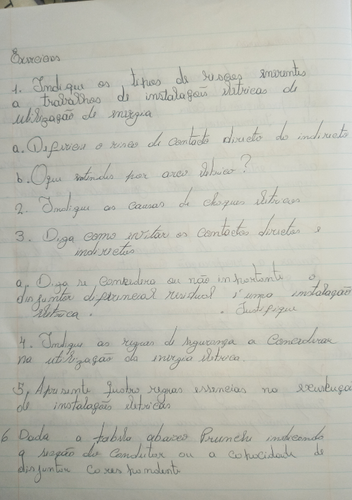 Exercicios
1. Indique os tipos de riscos inerentes
a trabalhos de instalação eletricas de
utilização de energia
a. Diferencie o risco de contacto directo do indirecto
b. O que entendes por arco eletrico?
2. Indique as causas de choques eletricos
3. Diga como evitar os contactos directos e
indirectos
a, Diga se considera ou não importante o
disjuntor diferencial residual e uma instalação
eletrica. . Justifique
4. Indique as regras de segurança a considerar
na utilização da energia eletrica.
5, Apresente quatro regras essencias na execução
de instalações eletricas
6. Dada a tabela abaixo Preencha indicando
a seção do condutor ou a capacidade de
disjuntor correspondente